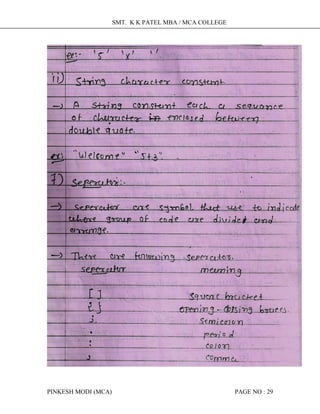 SMT. K K PATEL MBA / MCA COLLEGE
ex:- '5' 'x' ' '
ii) String character constant
→ A string constant each a sequence
of character enclosed between
double quote.
ex: "Welcome" "5+3"
7) Seperator:-
→ Seperator are symbol that use to indicate
where group of code are divided and
arrange.
→ There are following seperators.
seperator meaning
[ ] Square bracket
{ } opening - closing braces
; Semicolon
. period
: colon
, comma
PINKESH MODI (MCA) PAGE NO : 29